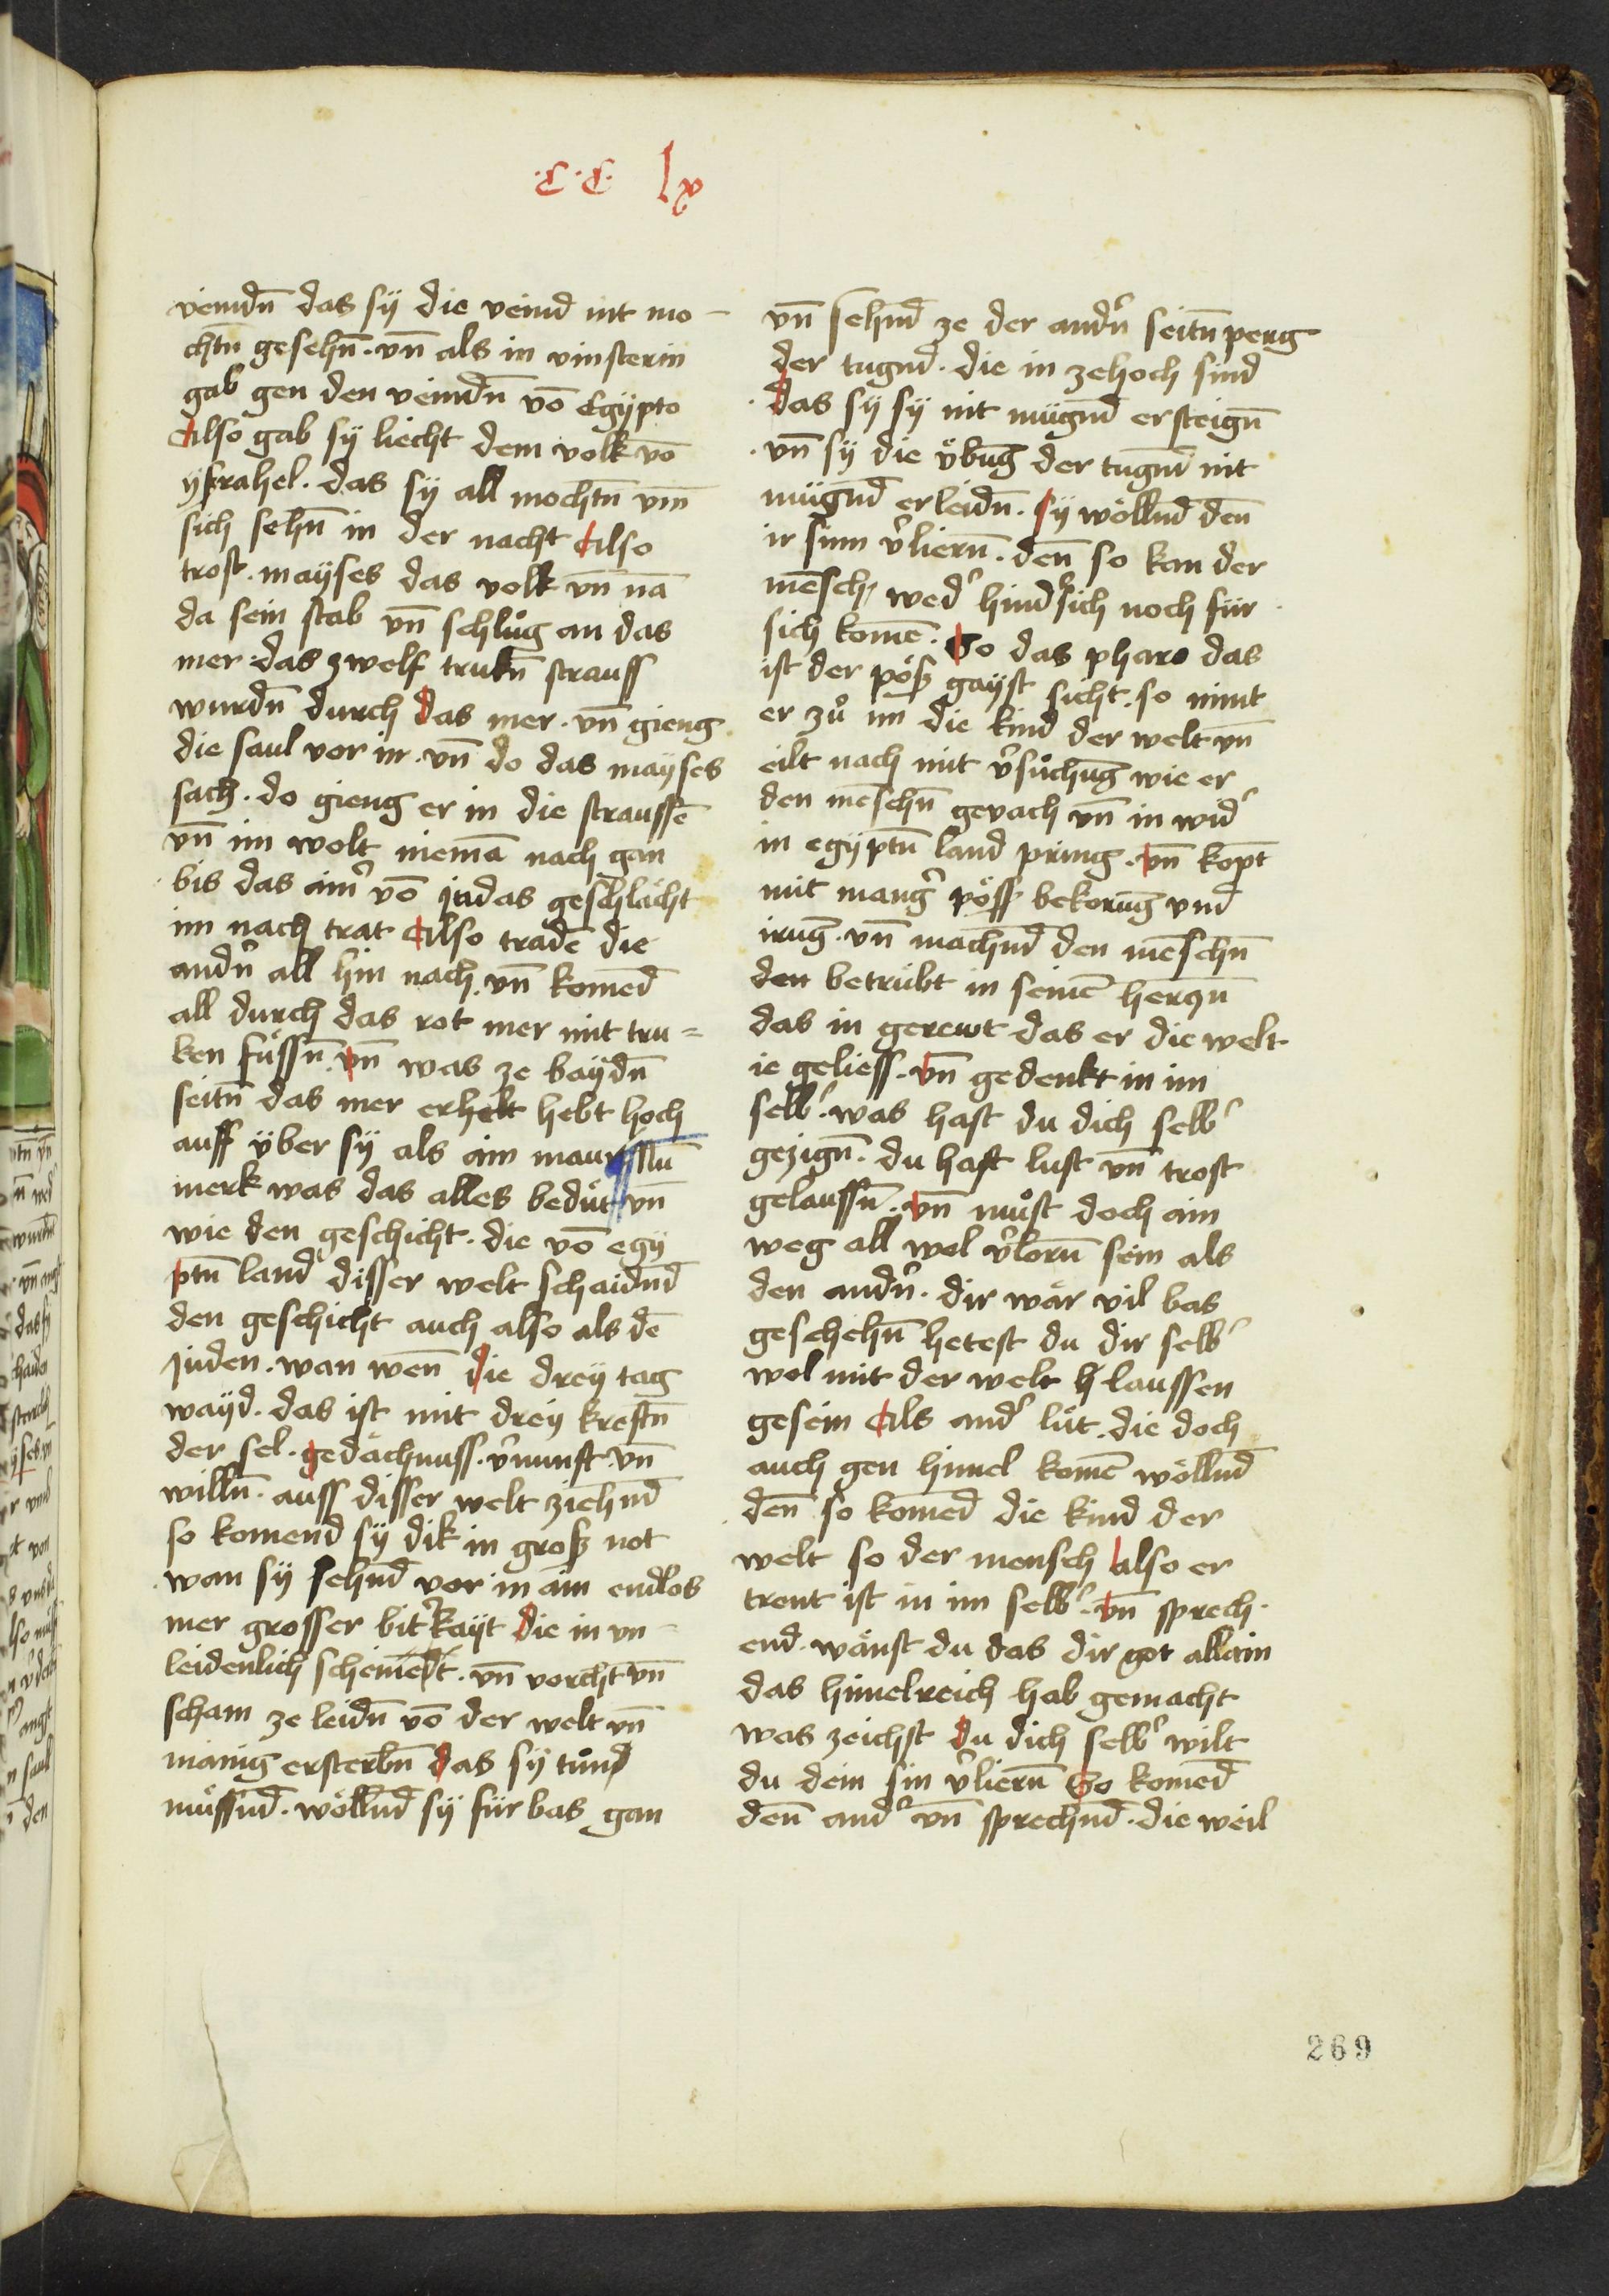 .C.C. lx
veindn̄ das sÿ die veind nit mo-
chtn̄ gesehn̄. vn̄ als in vinsterin
gab gen den veindn̄ vō Egÿpto
Also gab sÿ liecht dem volk vō
ÿsrahel. das sÿ all mochtn̄ vm̄
sich sehn̄ in der nacht Also
trost. maÿses das volk vn̄ nā
da sein stab vn̄ schlůg an das
mer das zwelf trukn̄ strauss
wurdn̄ durch das mer. vn̄ gieng
die saul vor in. vn̄ do das maÿses
sach. do gieng er in die straussē
vn̄ im wolt niemā nach gan
bis das ain̉ vō judas geschlächt
im nach trat Also tradē die
andn̉ all hin nach. vn̄ komēd
all durch das rot mer mit tru=
ken füssn̄. vn̄ was ze baÿdn̄
seitn̄ das mer erhebt hebt hoch
auff über sÿ als ain maur
merk was das alles bedüt vn̄
wie den geschicht. die vō egÿ
ptn̄ land disser welt schaidn̄d
den geschicht auch also als dē
juden. wan wen̄ die dreÿ tag
waÿd. das ist mit dreÿ kreftn̄
der sel. gedächnuss. v̉nunft. vn̄
willn̄. auss disser welt ziehn̄d
so komend sÿ dik in grosz not
wan sÿ sehn̄d vor in ain endlos
mer grosser bit̉kaÿt Die in vn-
leidenlich scheinedt. vn̄ vorcht vn̄
scham ze leidn̄ vō der welt vn̄
mānig ersterbn̄ das sÿ tůnd
müssn̄d. wölln̄d sÿ für bas gan
vn̄ sehn̄d ze der andn̉ seitn̄ perg
der tugn̄d. die in zehoch sind
. das sÿ sÿ nit mügn̄d ersteign̄
. vn̄ sÿ die v̈bunḡ der tugn̄d nit
mügn̄d erleidn̄. sÿ wölln̄d den̄
ir sinn v̉liern̄. den̄ so kan der
mēsch wed̉ hind̉sich noch für
sich komē. So das pharo das
ist der pösz gaÿst sicht. so nimt
er zů im die kind der welt vn̄
eilt nach mit v̉sůchunḡ wie er
den mēschn̄ gevach vn̄ in wid̉
in egÿptn̄ land pring. vn̄ kopt
mit mang̉ pöss bekorunḡ vnd
irunḡ. vn̄ machn̄d den mēschn̄
den betrübt in seinē herczn̄
das in gerewt das er die welt
ie geliess. vn̄ gedenkt in im
selb̉. was hast du dich selb̉
gezign̄. du hast lust vn̄ trost
gelaussn̄. vn̄ můst doch ain
weg all wol v̉lorn̄ sein als
den andn̉. dir wär vil bas
geschehn̄ hetest du dir selb̉
wol mit der welt h laussen
gesein Als and̉ lüt. die doch
auch gen himel komē wölln̄d
den̄ so komēd die kind der
welt so der mensch also er
trent ist in im selb̉. vn̄ sprech.
end. wänst du das dir got allain
das himelreich hab gemacht
was zeichst du dich selb̉ wilt
du dein sin v̉liern̄ So komēd
den̄ and̉ vn̄ sprechn̄d. die weil
269